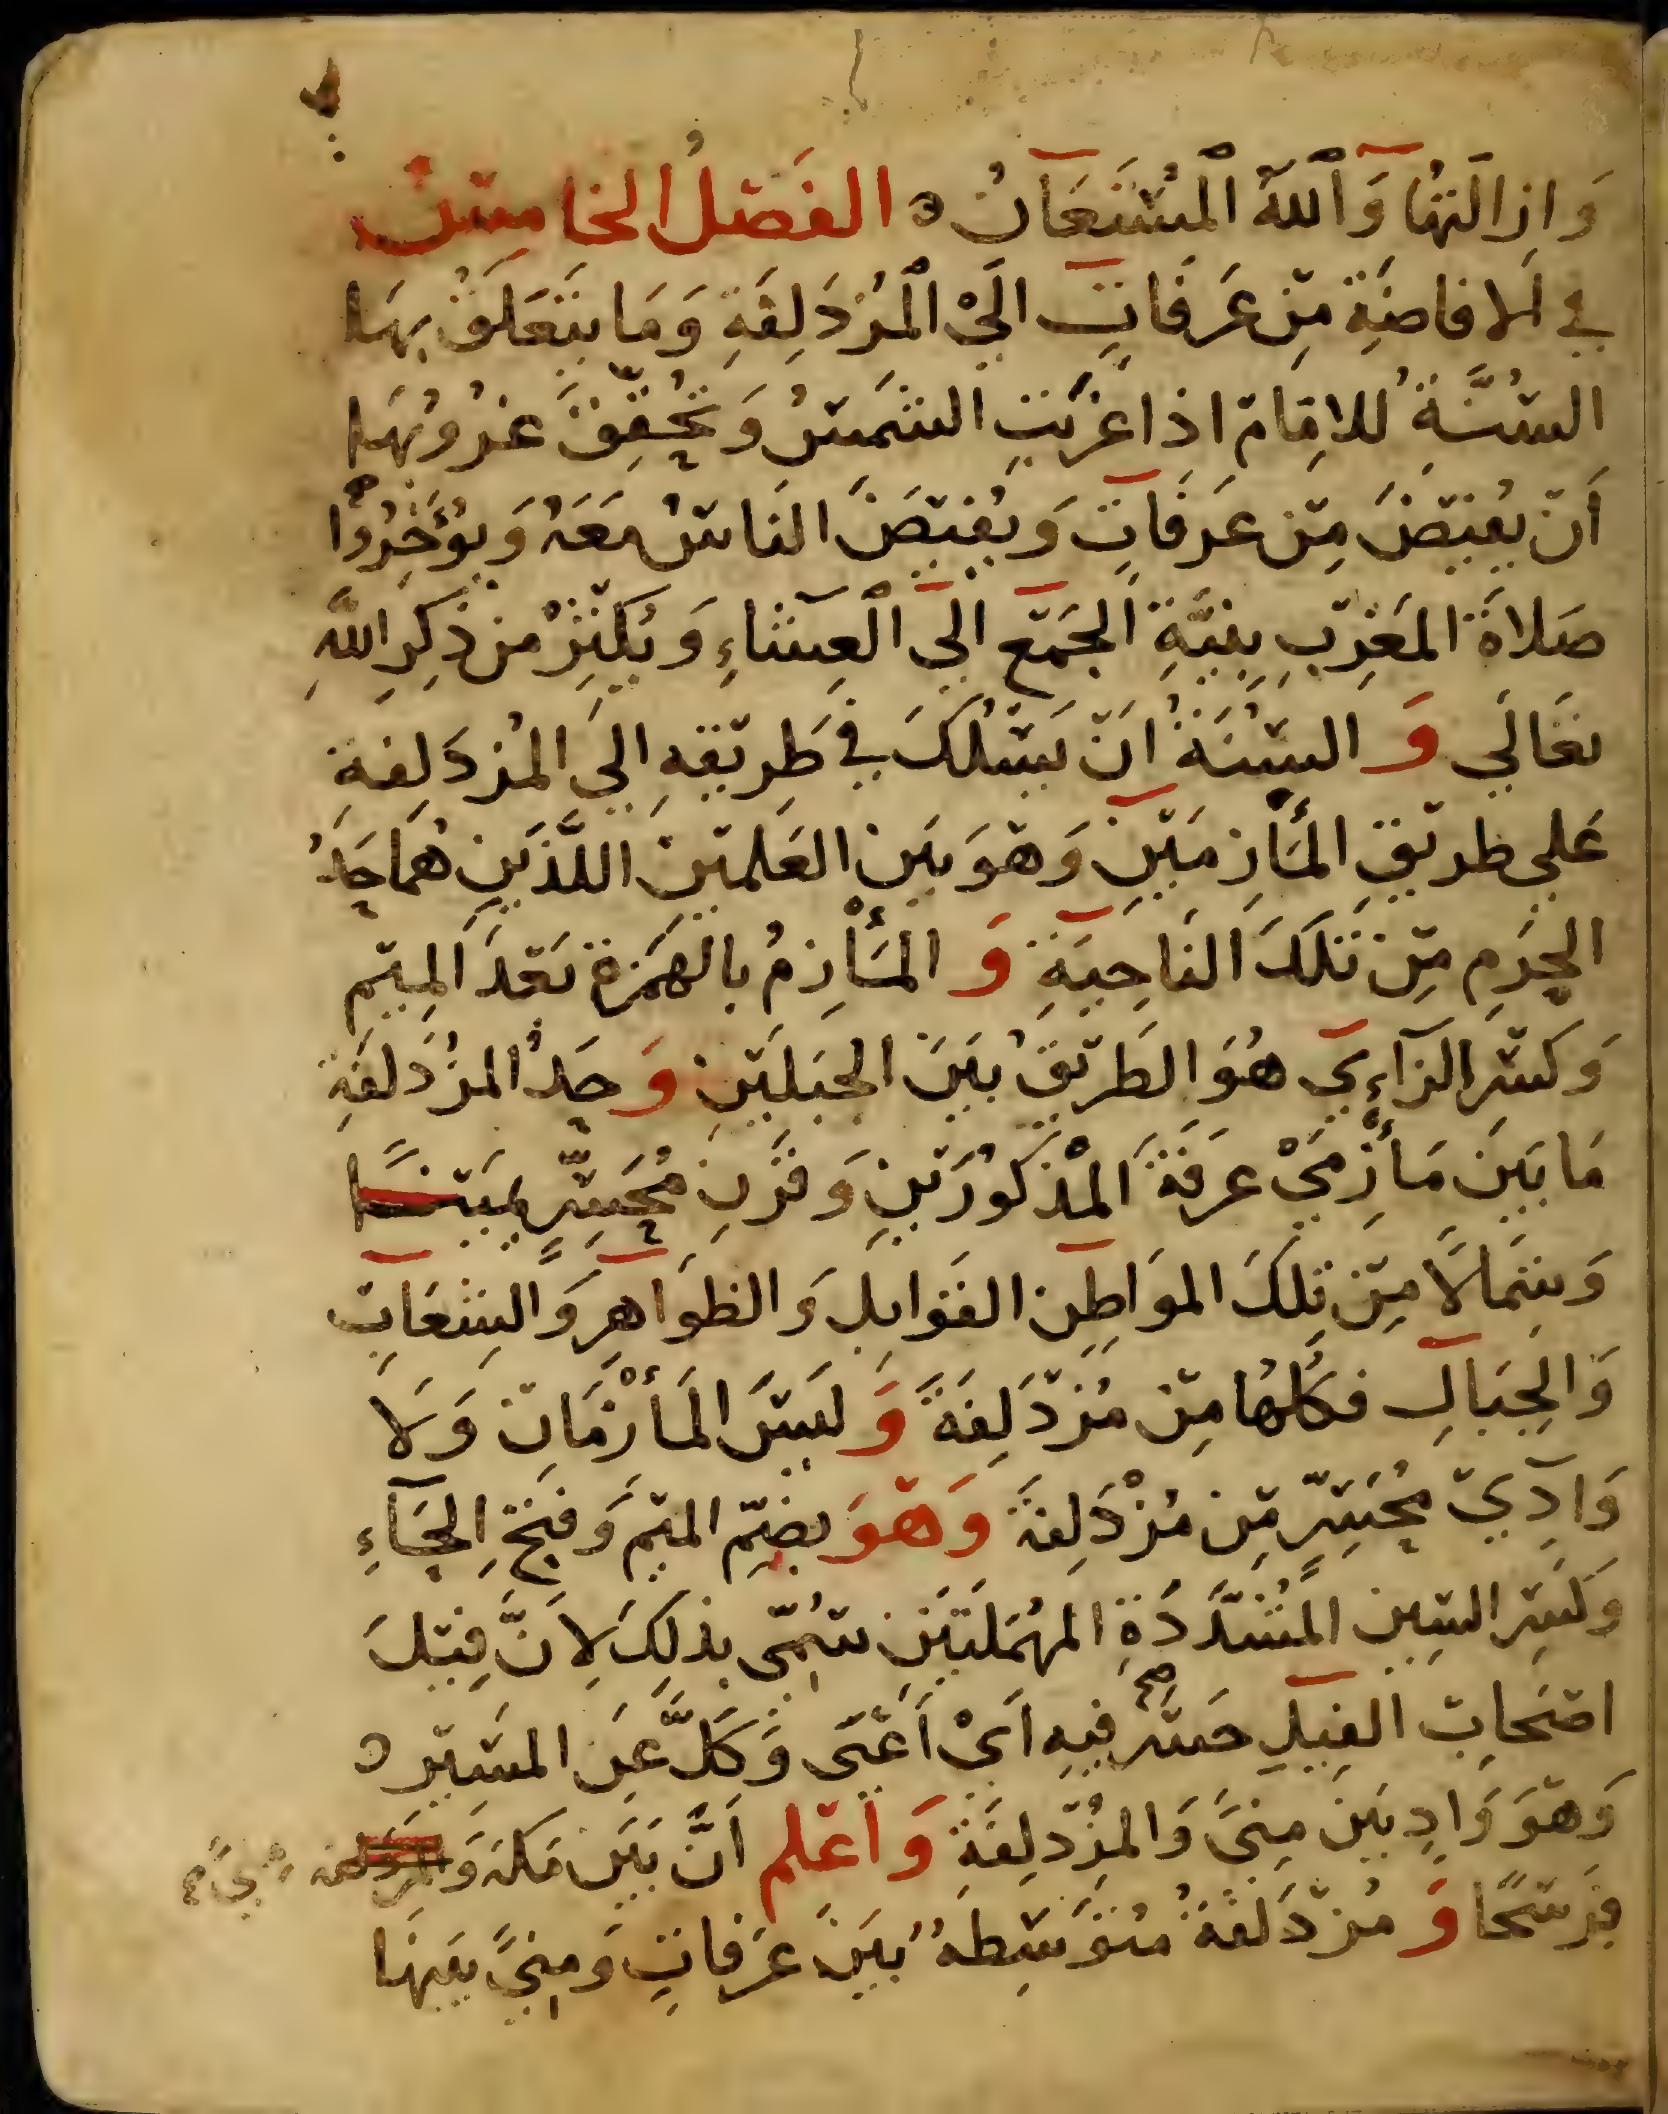 وَاِزَالَتِهَا وَٱللَّهُ ٱلْمُسْتَعَانُ ه الفَصْلُ الخَامِسْ
فِي الافَاضَةِ مِنْ عَرَفَاتٍ الَيْ ٱلْمُزْدَلِفَةِ وَمَا يَتَعَلَقُ بِهَا
السُنَّةُ لِلامِامْ اذا غَرَبَتِ الشَمْسُ وَتَحُقِّقَ غرُوُبُهَا
أَنْ يُفِيْضَ مِنْ عَرَفَاتٍ وَيُفِيْضَ النَاسُ مَعَهُ وَيُوَخِّرُوْا
صَلاةَ المَغْرِبِ بِنِيَّةِ الجَمْعِ الَى ٱلْعِشَاءِ وَيُكْثِرُ من ذِكِرِ اللَّهِ
تعَالَي وَ السُنَةُ اَنْ يَسْلُكَ فِي طَرِيْقِهِ الِيَ المُزدَلِفةِ
عَلي طرِيْقِ المَأَزِمَيْنِ وَهْوَ بَين العَلَمَيْن اللَّذَينِ هُمَا حَدُ
الحَرَمِ مِنْ تَلَكَ النَاحِيَةِ وَ المَأْزِمُ بالهَمَزة بَعْدَ المِيْم
وَكَسْر الزَاءِي هُوَ الطَرِيْقُ بَيَنَ الجَبَلَيْنِ وَحَدُ المزُدَلفَةِ
مَا بَيَنَ مَأْزِمَيْ عَرَفَةَ المْذَكوُرَيْنِ وَقَرْنِ مُحَسِّرٍ يمَيْنًا
وَشِمَالًا مِنْ تِلكَ المَوَاطِن القَوَابِلِ وَالظوَاهِرِ وَالشِعَابِ
وَالجِبَالِ فكُلُهَا مِنْ مُزْدَلِفَةَ وَ ليَسَ المَأْزِمَانِ وَلَا
وَادِيْ مُحَسِّرٍ مِنْ مُزْدَلِفةَ وَهْوَ بِضَمِّ الميْم وَفتحِ الحَاءِ
وَكَسْرِ السِين المُشَدَّدَةِ المهُمَلَتَيَنِ سُمّى بذلِكَ لِانَّ فِيْلَ
اصْحَابِ الفِيلِ حَسَر فيهِ اَيْ اَعْيَى وَكَلَّ عَنِ المَسيْرِ ه
وَهْوَ وَادٍ بَينَ مِنىً وَالمزُدْلِفَةِ وَاعْلم اَنَّ بَيَن مَكةَ وَ مِنىً صح
فرَسَخًا وَ مُزْدَلفَةُ مُتَوَسِّطَةُ بَيَنَ عَرَفَاتٍ وَمِنىً بَينَهَا